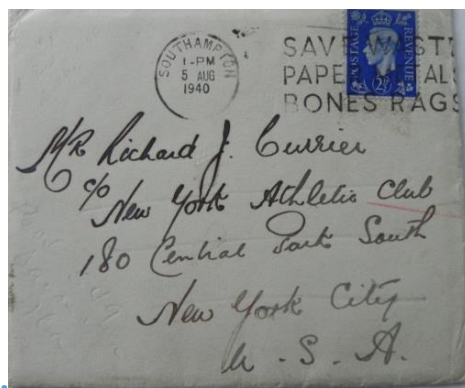 SOUTHAMPTON
1-PM
5 AUG
1940
SAVE WASTE
PAPER METALS
BONES RAGS
POSTAGE REVENUE
2½
Mr Richard J. Currier
c/o
New York Athletic Club
180 Central Park South
New York City
U.S.A.